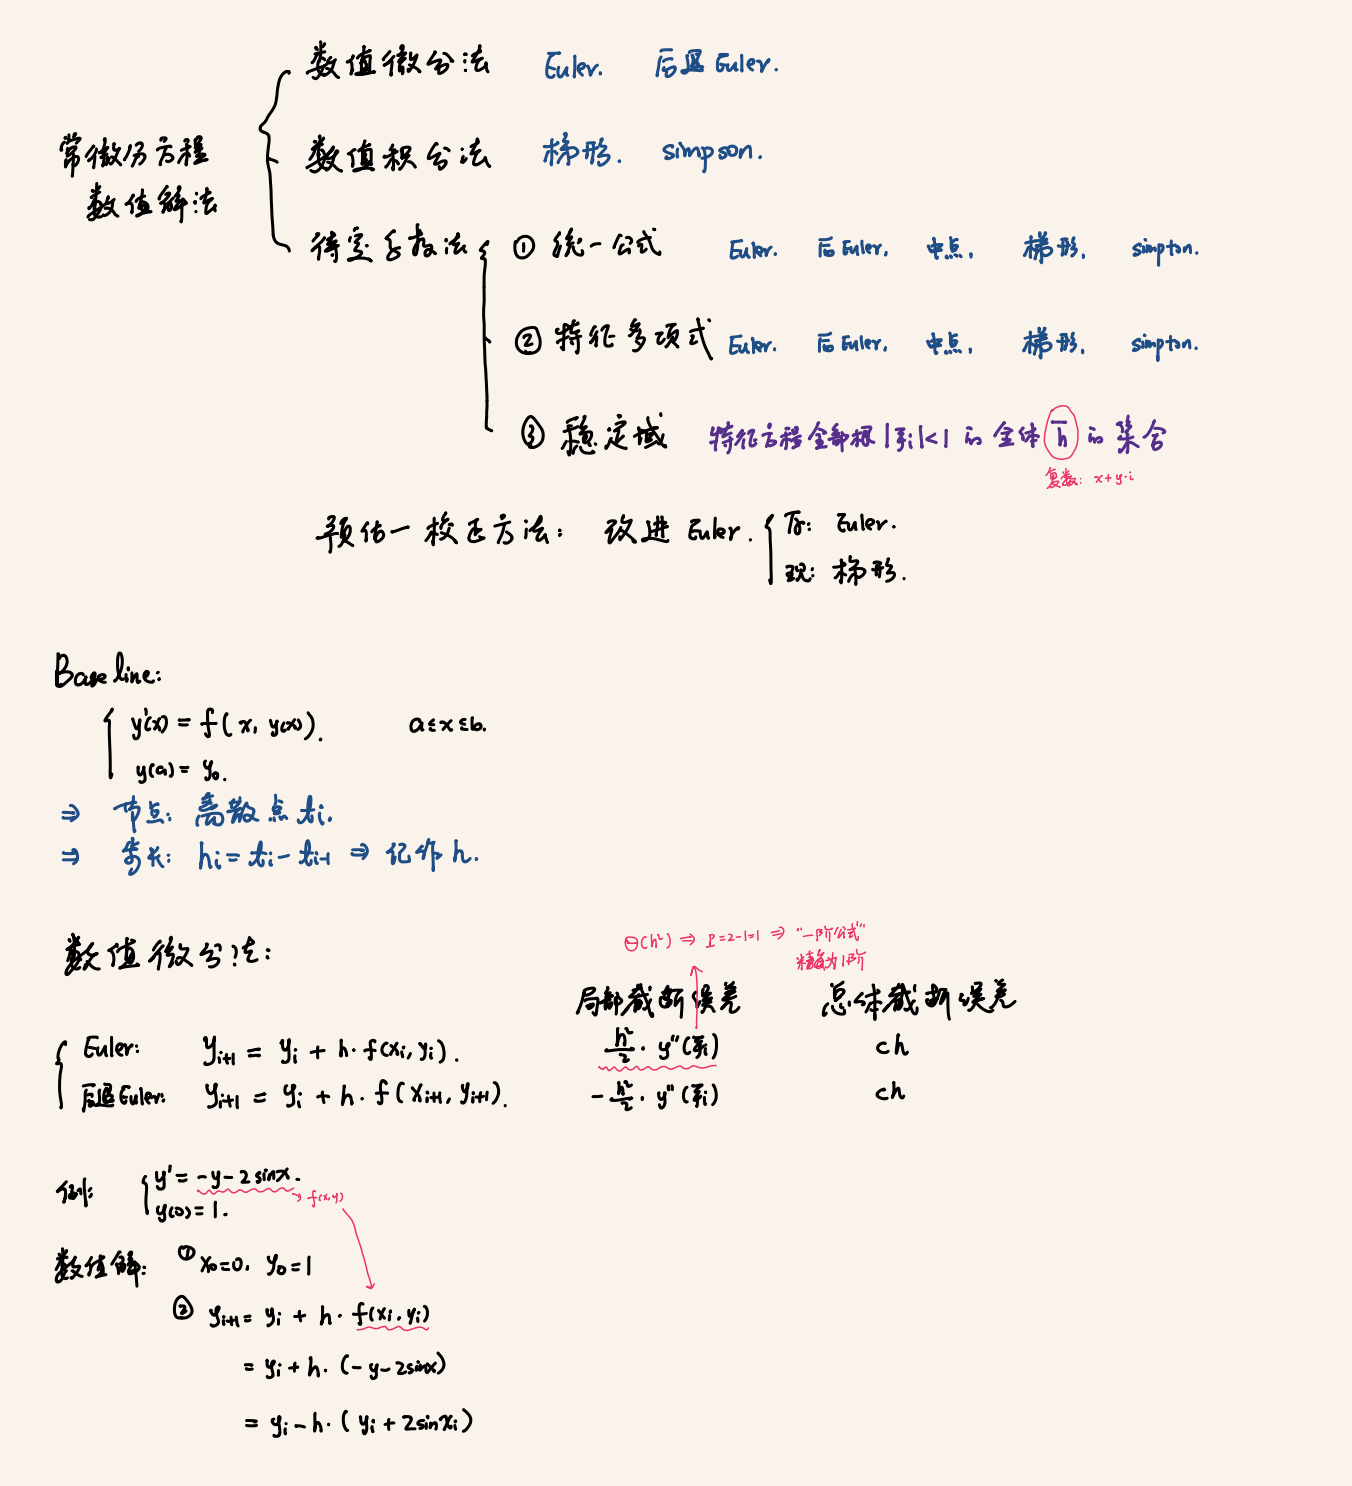 数值微分法 Euler. 后退Euler.
常微分方程
数值解法
数值积分法 梯形. simpson.
待定系数法 ① 统一公式 Euler. 后Euler. 中点. 梯形. simpton.
② 特征多项式 Euler. 后Euler. 中点. 梯形. simpton.
③ 稳定域 特征方程全部根|ξi|<1 的全体 h̄ 的集合
复数: x+y·i
预估-校正方法: 改进 Euler. 后: Euler.
现: 梯形.
Base line:
y'(x) = f(x, y(x)). a≤x≤b.
y(a) = y₀.
⇒ 节点: 离散点 ti.
⇒ 步长: hi = ti - ti-1 ⇒ 记作 h.
数值微分法:
Θ(h²) ⇒ P=2-1=1 ⇒ "一阶公式"
精度为1阶
局部截断误差 总体截断误差
Euler: yi+1 = yi + h·f(xi, yi). h²/2 · y''(ξi) ch
后退Euler: yi+1 = yi + h·f(xi+1, yi+1). -h²/2 · y''(ξi) ch
例: y' = -y-2sinx. → f(x,y)
y(0)=1.
数值解: ① x₀=0, y₀=1
② yi+1 = yi + h·f(xi, yi)
= yi + h·(-y-2sinx)
= yi - h·(yi + 2sinxi)